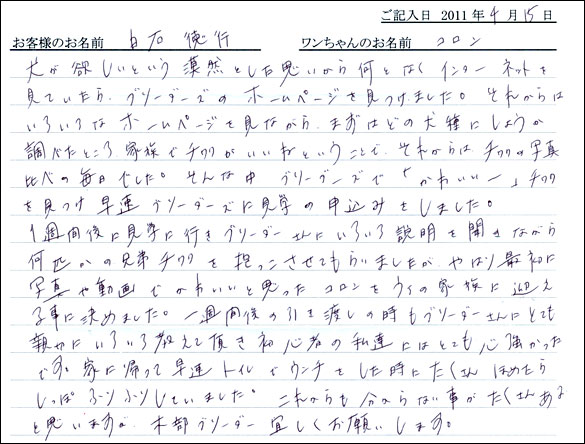 ご記入日 2011年4月15日
お客様のお名前 白石 徳行 ワンちゃんのお名前 コロン
犬が欲しいという漠然とした思いから何となくインターネットを
見ていたら、ブリーダーズのホームページを見つけました。それからは
いろいろなホームページを見ながら、まずはどの犬種にしようか
調べたところ家族でチワワがいいねということで、それからはチワワの写真
比べの毎日でした。そんな中ブリーダーズで「かわいいー」チワワ
を見つけ早速ブリーダーズに見学の申込みをしました。
1週間後に見学に行きブリーダーさんにいろいろ説明を聞きながら
何匹かの兄弟チワワを抱っこさせてもらいましたが、やはり最初に
写真や動画でかわいいと思ったコロンをウィの家族に迎え
る事に決めました。一週間後の引き渡しの時もブリーダーさんにとても
親やにいろいろ教えて頂き初心者の私達にはとても心強かった
です。家に帰って早速トイレでウンチをした時にたくさんほめたら
しっぽふりふりしていました。これからも分からない事がたくさんある
と思いますが、木部ブリーダー宜しくお願いします。